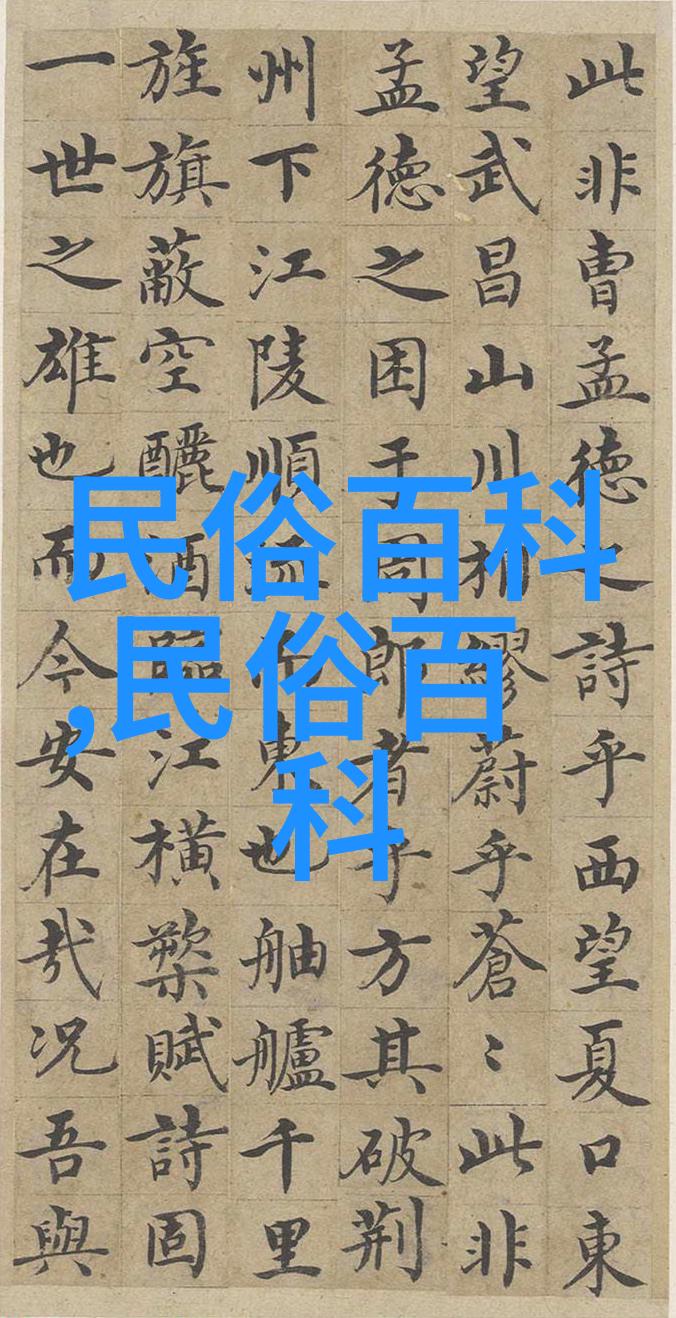 此非曹孟德之詩乎西望夏口東
望武昌山川相繆蔚乎蒼〻此非
孟德之困于周郎者乎方其破荆
州下江陵順流而東也舳艫千里
旌旗蔽空釃酒臨江橫槊賦詩固
一世之雄也而今安在哉况吾與
民俗百科
,民俗百
科